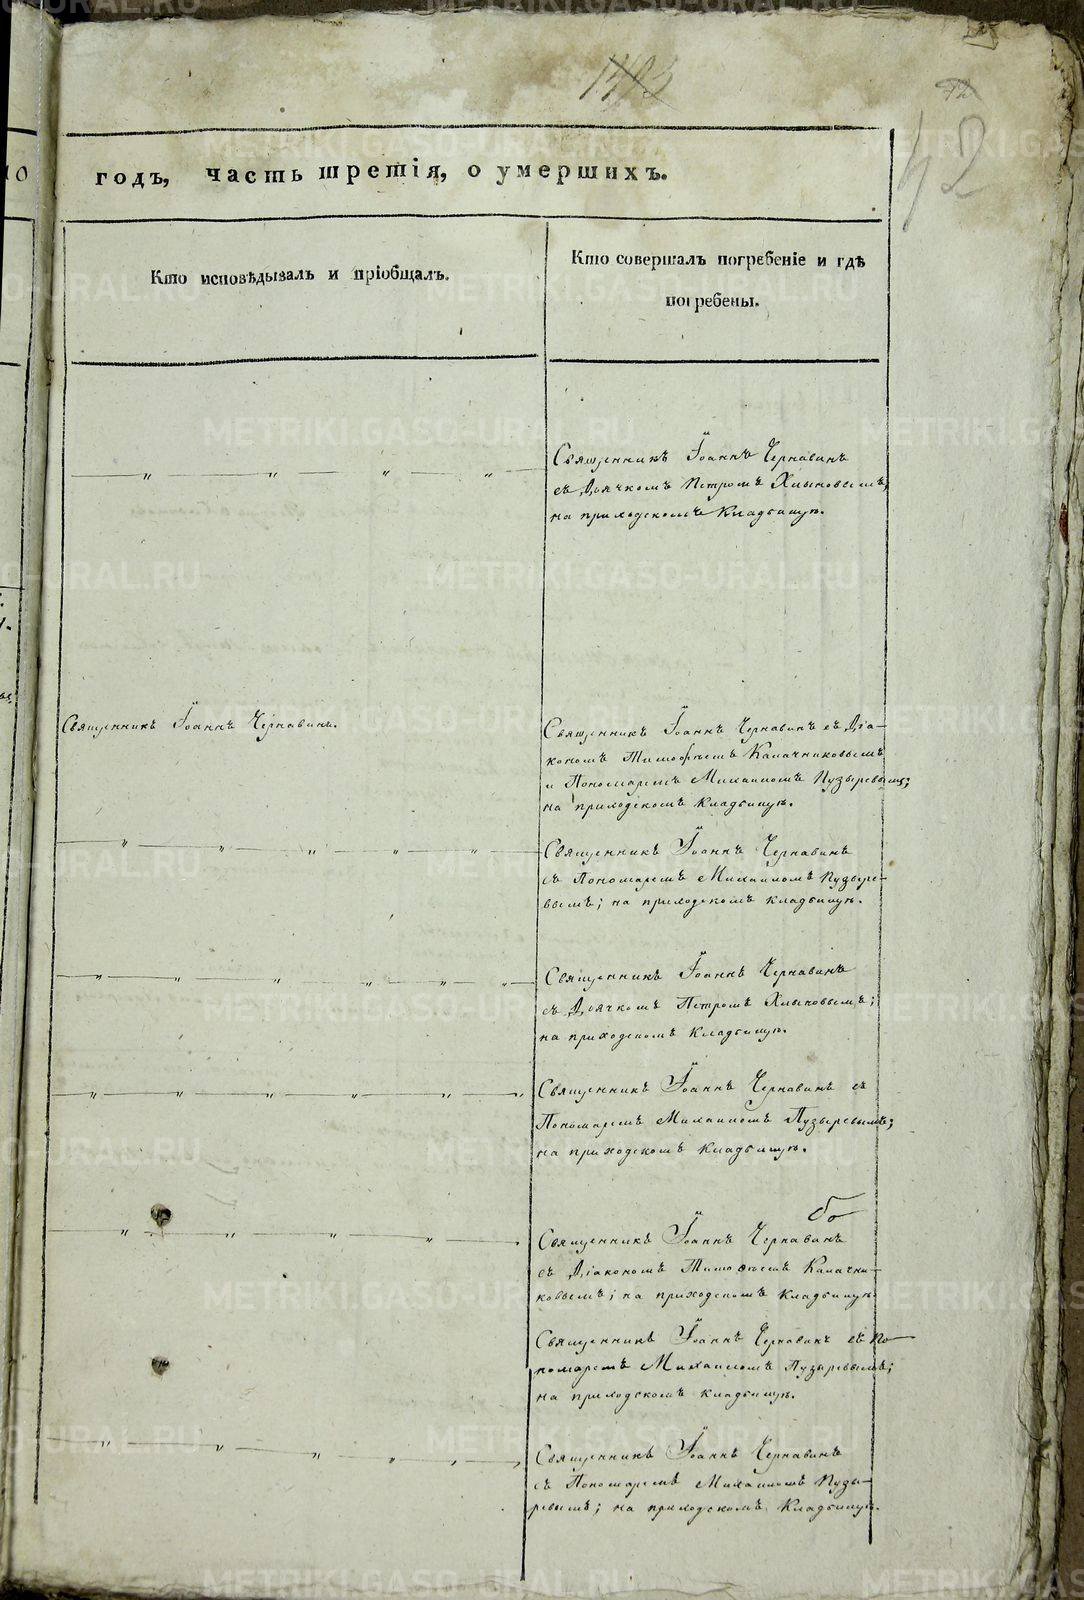 1493
72
42
годъ, часть третія, о умершихъ.
Кто исповѣдывалъ и пріобщалъ.
Кто совершалъ погребеніе и гдѣ
погребены.
Священникъ Іоаннъ Чернавинъ
съ Дьячкомъ Петромъ Хлыновымъ;
на приходскомъ кладбищѣ.
Священникъ Іоаннъ Чернавинъ.
Священникъ Іоаннъ Чернавинъ съ Діа-
кономъ Тимоѳеемъ Калачниковымъ
и Пономаремъ Михаиломъ Пузыревымъ;
на приходскомъ кладбищѣ.
Священникъ Іоаннъ Чернавинъ
съ Пономаремъ Михаиломъ Пузыре-
вымъ; на приходскомъ кладбищѣ.
Священникъ Іоаннъ Чернавинъ
съ Дьячкомъ Петромъ Хлыновымъ;
на приходскомъ кладбищѣ.
Священникъ Іоаннъ Чернавинъ съ
Пономаремъ Михаиломъ Пузыревымъ;
на приходскомъ кладбищѣ.
Священникъ Іоаннъ Чернавинъ
съ Діакономъ Тимоѳеемъ Калачни-
ковымъ; на приходскомъ кладбищѣ.
Священникъ Іоаннъ Чернавинъ съ По-
номаремъ Михаиломъ Пузыревымъ;
на приходскомъ кладбищѣ.
Священникъ Іоаннъ Чернавинъ
съ Пономаремъ Михаиломъ Пузы-
ревымъ; на приходскомъ кладбищѣ.
METRIKI.GASO-URAL.RU